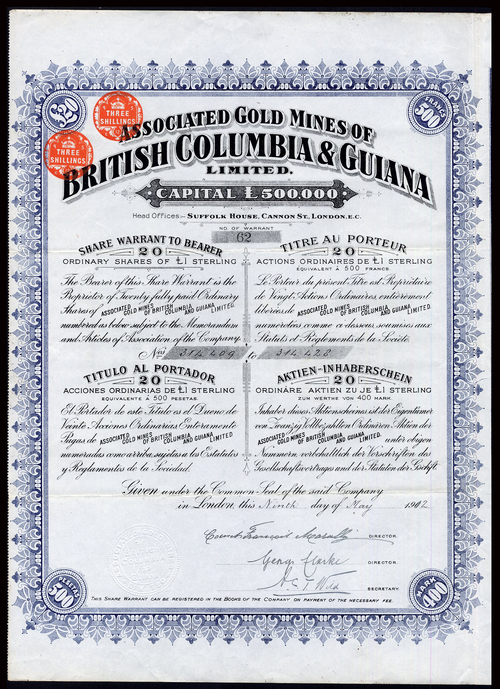 £20
500
FRANCS
THREE
SHILLINGS
THREE
SHILLINGS
ASSOCIATED GOLD MINES OF
BRITISH COLUMBIA & GUIANA
LIMITED.
CAPITAL £500,000
Head Offices — SUFFOLK HOUSE, CANNON ST. LONDON, E.C.
NO. OF WARRANT
62
SHARE WARRANT TO BEARER
20
ORDINARY SHARES OF £1 STERLING
The Bearer of this Share Warrant is the
Proprietor of Twenty fully paid Ordinary
Shares of ASSOCIATED GOLD MINES OF BRITISH COLUMBIA AND GUIANA LIMITED.
numbered as below subject to the Memorandum
and Articles of Association of the Company.
TITRE AU PORTEUR
20
ACTIONS ORDINAIRES DE £1 STERLING
EQUIVALENT À 500 FRANCS
Le Porteur du présent Titre est Propriétaire
de Vingt Actions Ordinaires entièrement
libérées de ASSOCIATED GOLD MINES OF BRITISH COLUMBIA AND GUIANA LIMITED.
numérotées comme ci-dessous, soumises aux
Statuts et Règlements de la Société.
Nos 314,409 to 314,428
TITULO AL PORTADOR
20
ACCIONES ORDINARIAS DE £1 STERLING
EQUIVALENTE À 500 PESETAS
El Portador de este Titulo es el Dueno de
Veinte Acciones Ordinarias Enteramente
Pagas de ASSOCIATED GOLD MINES OF BRITISH COLUMBIA AND GUIANA LIMITED
numeradas como arriba, sujetas a los Estatutos
y Reglamentos de la Sociedad.
AKTIEN-INHABERSCHEIN
20
ORDINÄRE AKTIEN ZU JE £1 STERLING
ZUM WERTHE VON 400 MARK.
Inhaber dieses Aktienscheines ist der Eigentümer
von Zwanzig Vollbezahlten Ordinären Aktien der
ASSOCIATED GOLD MINES OF BRITISH COLUMBIA AND GUIANA LIMITED. unter obigen
Nummern, vorbehaltlich der Vorschriften des
Gesellschaftsvertrages und der Statuten der Geschft.
Given under the Common Seal of the said Company
in London, this Ninth day of May 1902
DIRECTOR.
George Clarke
DIRECTOR.
SECRETARY.
PESETAS
500
MARK
400
THIS SHARE WARRANT CAN BE REGISTERED IN THE BOOKS OF THE COMPANY ON PAYMENT OF THE NECESSARY FEE.